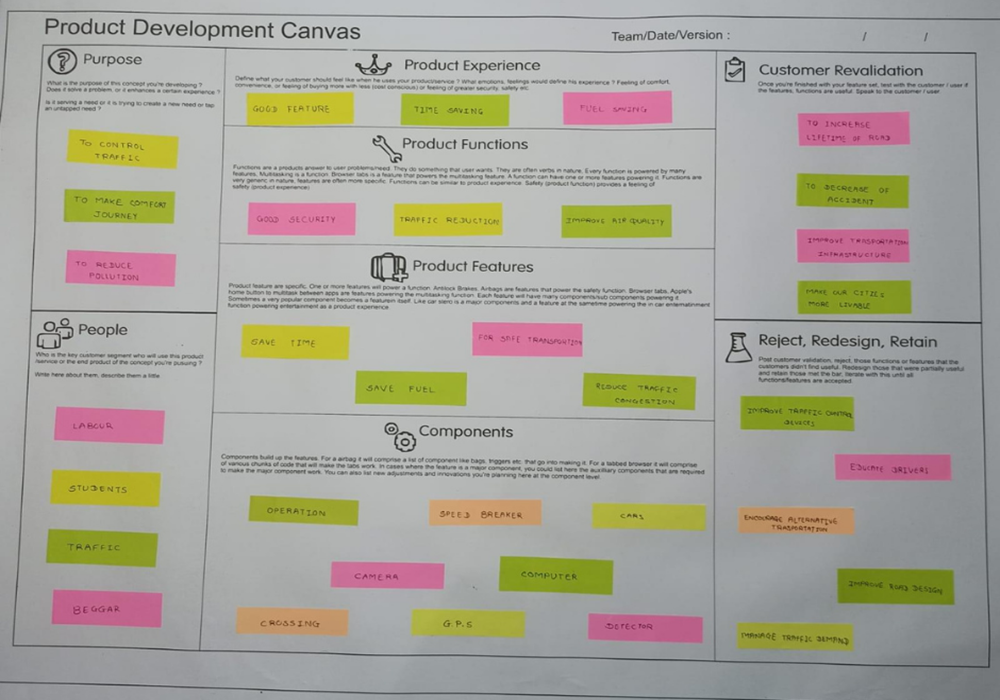 Product Development Canvas
Team/Date/Version :
/
/
Purpose
What is the purpose of this concept you're developing ?
Does it solve a problem, or it enhances a certain experience ?
Is it serving a need or it is trying to create a new need or tap
an untapped need ?
TO CONTROL
TRAFFIC
TO MAKE COMFORT
JOURNEY
TO REDUCE
POLLUTION
People
Who is the key customer segment who will use this product
/service or the end product of the concept you're pursuing ?
Write here about them, describe them a little
LABOUR
STUDENTS
TRAFFIC
BEGGAR
Product Experience
Define what your customer should feel like when he uses your product/service ? What emotions, feelings would define his experience ? Feeling of comfort,
convenience, or feeling of buying more with less (cost conscious) or feeling of greater security, safety etc
GOOD FEATURE
TIME SAVING
FUEL SAVING
Product Functions
Functions are a products answer to user problems/need. They do something that user wants. They are often verbs in nature. Every function is powered by many
features. Multitasking is a function. Browser tabs is a feature that powers the multitasking feature. A function can have one or more features powering it. Functions are
very generic in nature, features are often more specific. Functions can be similar to product experience. Safety (product function) provides a feeling of
safety (product experience)
GOOD SECURITY
TRAFFIC REDUCTION
IMPROVE AIR QUALITY
Product Features
Product feature are specific. One or more features will power a function. Antilock Brakes, Airbags are features that power the safety function. Browser tabs, Apple's
home button to multitask between apps are features powering the multitasking function. Each feature will have many components/sub components powering it.
Sometimes a very popular component becomes a feature in itself. Like car stereo is a major components and a feature at the same time powering the in car entertainment
function powering entertainment as a product experience
SAVE TIME
FOR SAFE TRANSPORTATION
SAVE FUEL
REDUCE TRAFFIC
CONGESTION
Components
Components build up the features. For a airbag it will comprise a list of component like bags, triggers etc. that go into making it. For a tabbed browser it will comprise
of various chunks of code that will make the tabs work. In cases where the feature is a major component, you could list here the auxilliary components that are required
to make the major component work. You can also list new adjustments and innovations you're planning here at the component level
OPERATION
SPEED BREAKER
CARS
CAMERA
COMPUTER
CROSSING
G.P.S
DETECTOR
Customer Revalidation
Once you're finished with your feature set, test with the customer / user if
the features, functions are useful. Speak to the customer / user
TO INCREASE
LIFETIME OF ROAD
TO DECREASE OF
ACCIDENT
IMPROVE TRANSPORTATION
INFRASTRUCTURE
MAKE OUR CITIES
MORE LIVABLE
Reject, Redesign, Retain
Post customer validation, reject, those functions or features that the
customers didn't find useful. Redesign those that were partially useful
and retain those met the bar, iterate with this until all
functions/features are accepted
IMPROVE TRAFFIC CONTROL
DEVICES
EDUCATE DRIVERS
ENCOURAGE ALTERNATIVE
TRASPORTATION
IMPROVE ROAD DESIGN
MANAGE TRAFFIC DEMAND